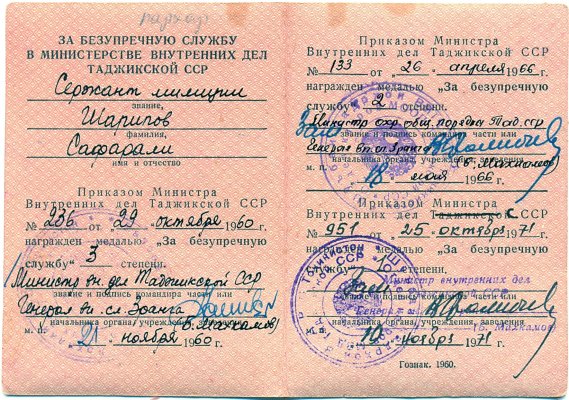 пархар
ЗА БЕЗУПРЕЧНУЮ СЛУЖБУ
В МИНИСТЕРСТВЕ ВНУТРЕННИХ ДЕЛ
ТАДЖИКСКОЙ ССР
Сержант милиции
звание,
Шарипов
фамилия,
Сафарали
имя и отчество
Приказом Министра
Внутренних дел Таджикской ССР
№ 236 от „29“ октября 1960 г.
награжден медалью „За безупречную
службу“ 3 степени.
Министр вн. дел Таджикской ССР
звание и подпись командира части или
Генерал вн. сл. 3 ранга
начальника органа, учреждения, заведения
(В. Махкамов)
м. п. „21“ ноября 1960 г.
Приказом Министра
Внутренних дел Таджикской ССР
№ 133 от „26“ апреля 1966 г.
награжден медалью „За безупречную
службу“ 2 степени.
Зам Министр охр. общ. порядка Тадж. ССР
звание и подпись командира части или
Генерал вн. сл. 3 ранга
начальника органа, учреждения, заведения
(В. Махкамов)
м. п. июня 1966 г.
Приказом Министра
Внутренних дел Таджикской ССР
№ 951 от „25“ октября 1971 г.
награжден медалью „За безупречную
службу“ степени.
Министр внутренних дел
звание и подпись командира части или
начальника органа, учреждения, заведения
(В. Махкамов)
м. п. „10“ ноября 1971 г.
Гознак. 1960.